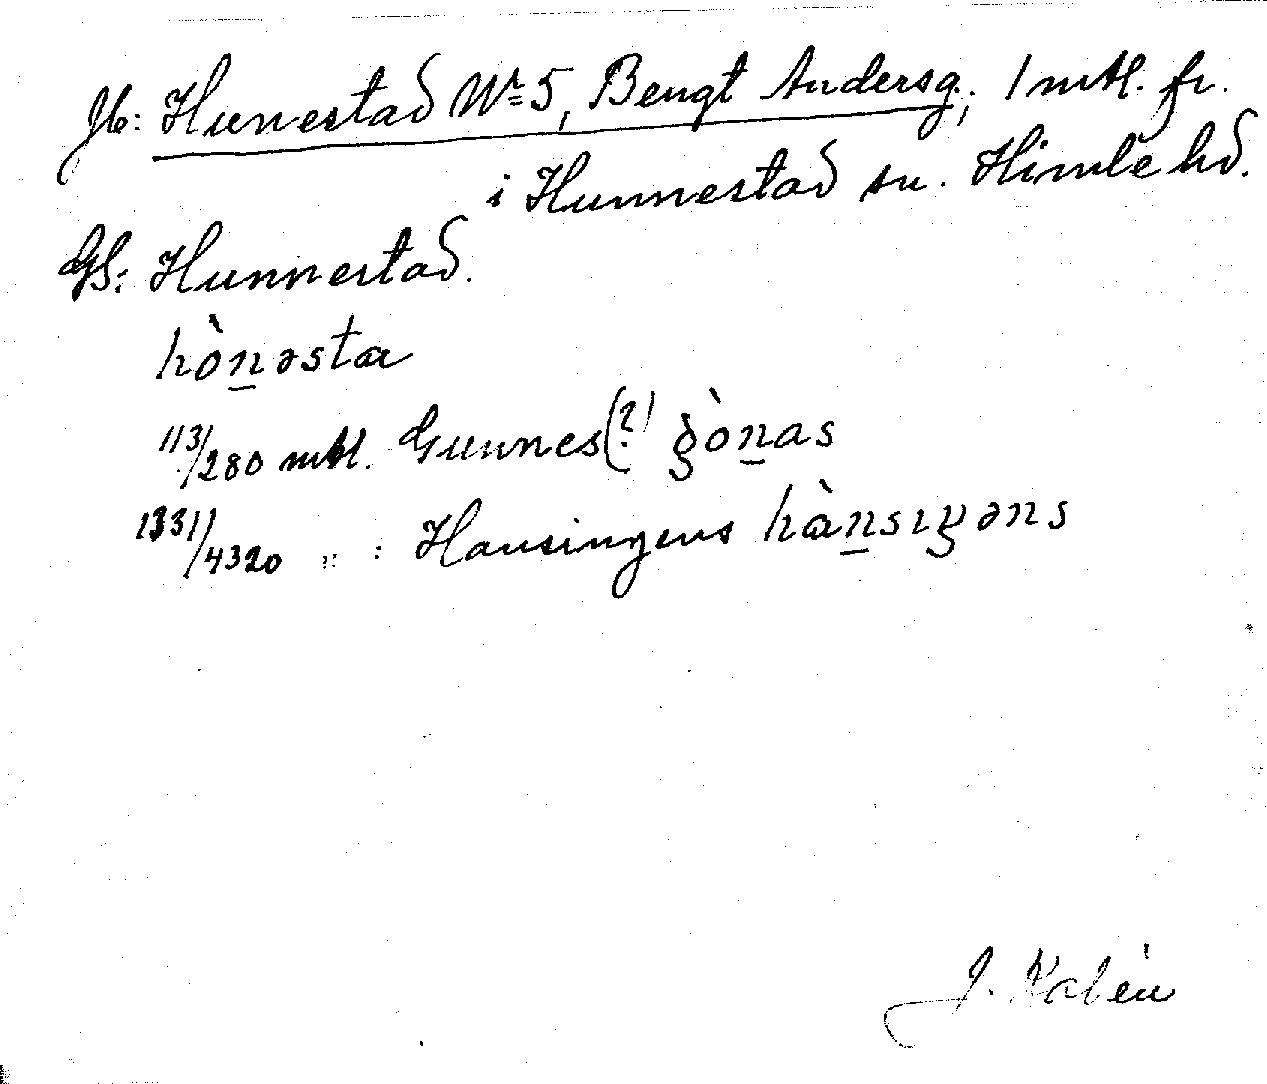 Jb: Hunestad Nr 5, Bengt Andersg.; 1 mtl. fr.
i Hunnestad sn. Himle hd.
GS: Hunnestad.
hòn̲əsta
113/280 mtl. Gunnes(?) gòn̲as
1331/4320 " : Hansingens hàn̲sıŋəns
J. Kalén